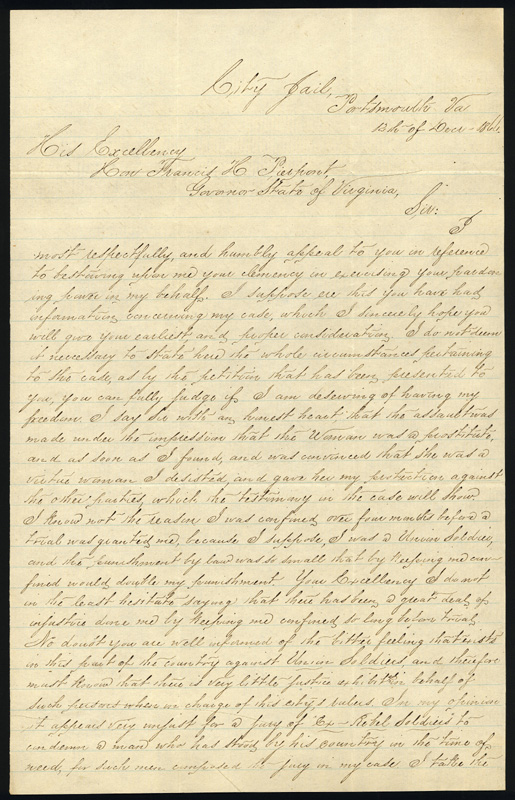 City Jail,
Portsmouth Va
13th of Decr - 1866.
His Excellency
Hon Francis H Pierpont,
Govenor State of Virginia,
Sir:
I
most respectfully, and humbly appeal to you in reference
to bestowing upon me your clemency in exercising your pardon
ing power in my behalf. I suppose ere this you have had
information concerning my case, which I sincerely hope you
will give your earliest, and proper consideration. I do not deem
it necessary to state here the whole circumstances pertaining
to the case, as by the petition that has been presented to
you, you can fully judge if I am deserving of having my
freedom. I say Sir with an honest heart that the assault was
made under the impression that the Woman was a prostitute,
and as soon as I found, and was convinced that she was a
virtue woman I desisted, and gave her my protection against
the other parties, which the testimony in the case will show.
I know not the reason I was confined over four months before a
trial was granted me, because I suppose, I was a Union Soldier,
and the punishment by law was so small that by keeping me con-
fined would double my punishment. Your Excellency I do not
in the least hesitate saying that there has been a great deal of
injustice done me by keeping me confined so long before trial.
No doubt you are well informed of the bitter feeling that exists
in this part of the country against Union Soldiers, and therefore
must know that there is very little justice exhibit in behalf of
such persons when in charge of his city's rulers. In my opinion
it appears very unjust for a jury of Ex-Rebel Soldiers to
condemn a man who has stood by his country in the time of
need, for such men composed the jury in my case I take the